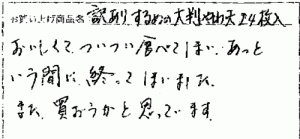 お買い上げ商品名 訳ありするめの大判やわ天24枚入
おいしくて、ついつい食べてしまい、あっと
いう間に、終ってしまいました。
また、買おうかと思っています。